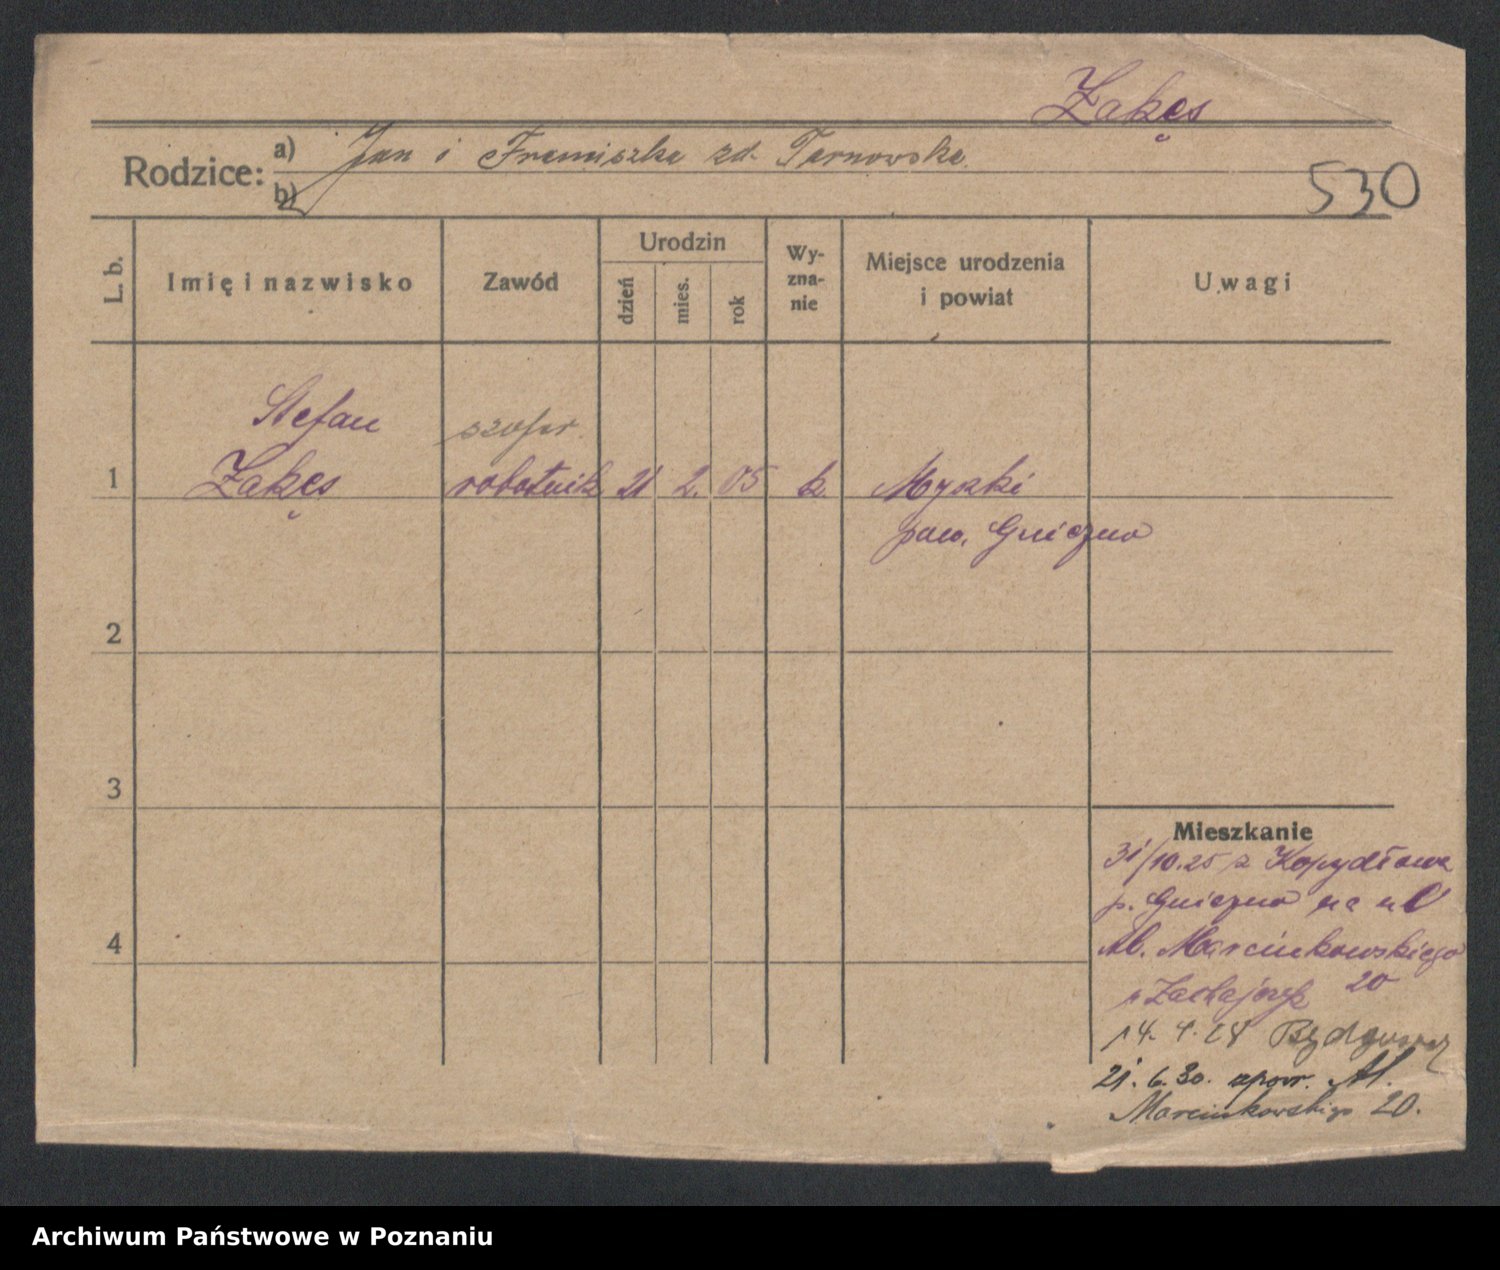 Żakęs
Rodzice: a) Jan i Franciszka zd. Tarnowska
b)
530
L. b.
Imię i nazwisko
Zawód
Urodzin
dzień
mies.
rok
Wy-
zna-
nie
Miejsce urodzenia
i powiat
Uwagi
Stefan szofer
1 Żakęs robotnik 21 2. 05 k. Myszki
pow. Gniezno
2
3
4
Mieszkanie
31/10.25 z Kopydłowa
p. Gniezno na ul
Al. Marcinkowskiego
20
14. 4. 28 Bydgoszcz
21. 6. 30. spowr. Al.
Marcinkowskiego 20.
Archiwum Państwowe w Poznaniu